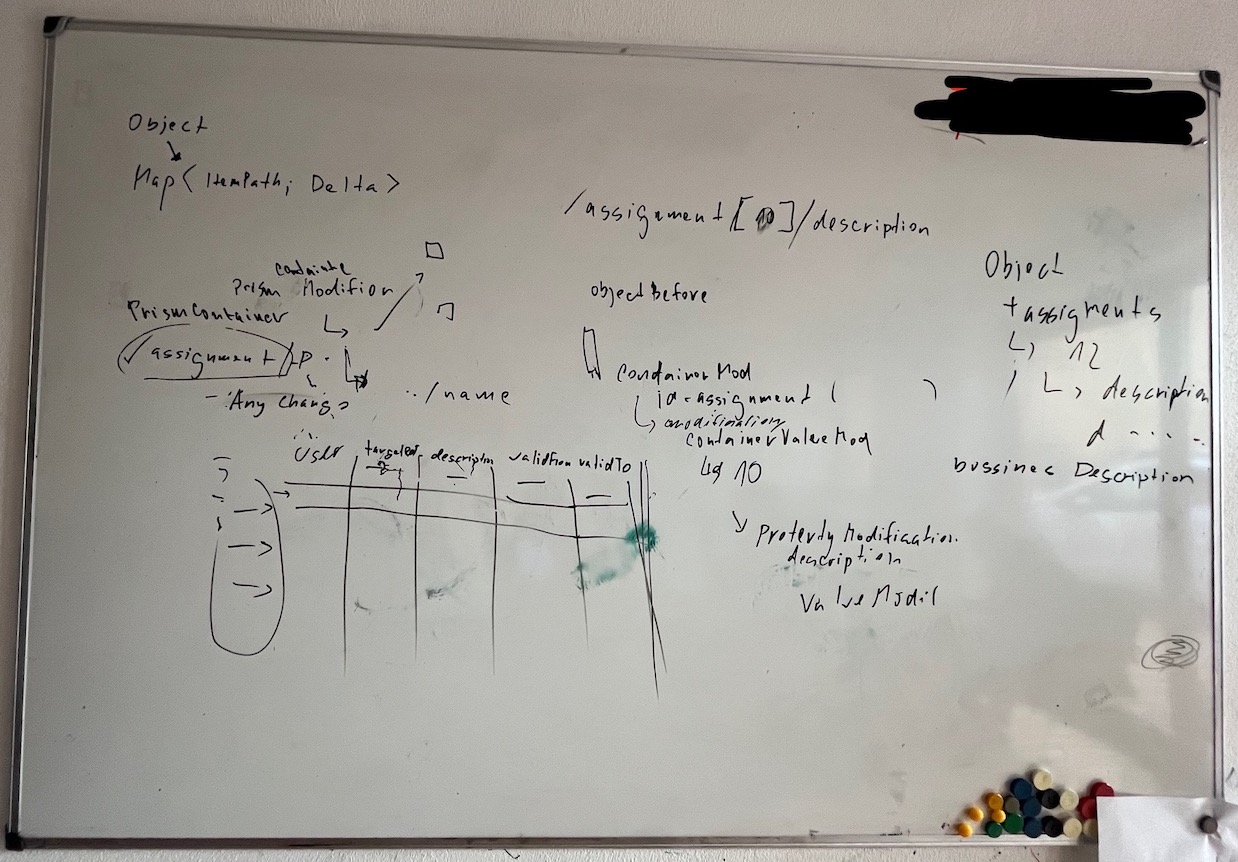 Object
Map< ItemPath; Delta >
/assignment[10]/description
Prism Modifion
PrismContainer
assignment
- Any change
../name
User
targetRef
description
validFrom
validTo
objectBefore
ContainerMod
id = assignment (         )
modification
ContainerValueMod
10
Property Modification.
description
Value Modif
Object
+ assigments
12
description
d - - - -
bussines Description